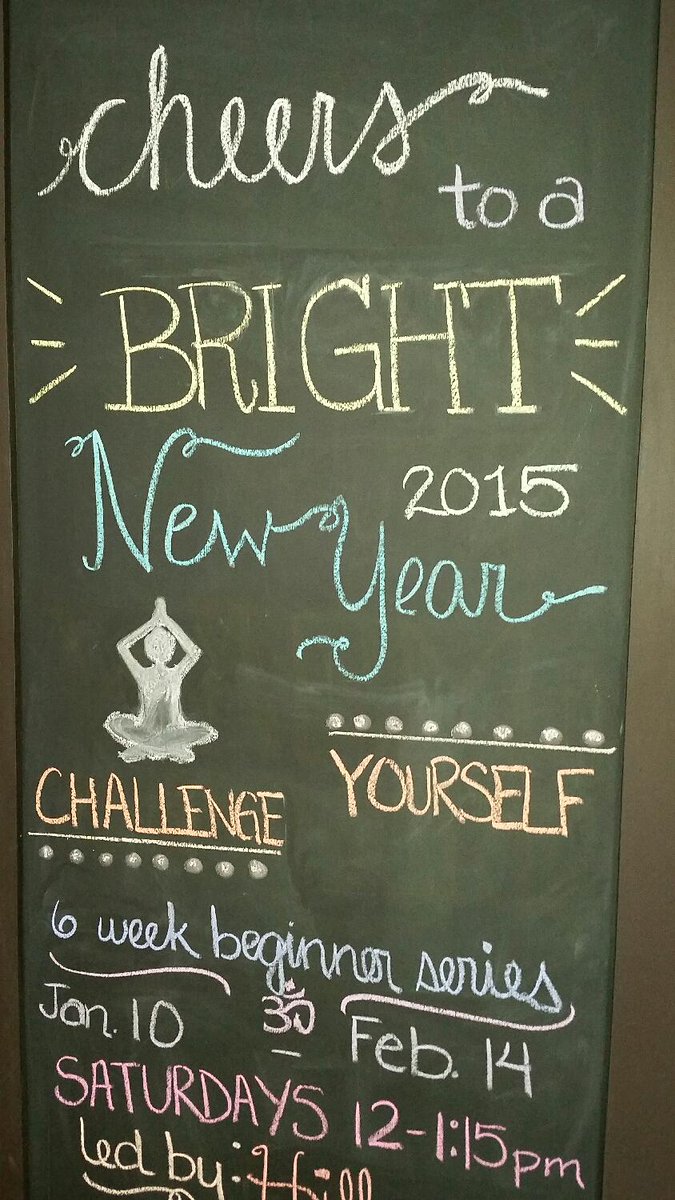 cheers
to a
BRIGHT
New 2015
Year
CHALLENGE YOURSELF
6 week beginner series
Jan. 10 ॐ – Feb. 14
SATURDAYS 12-1:15pm
led by: